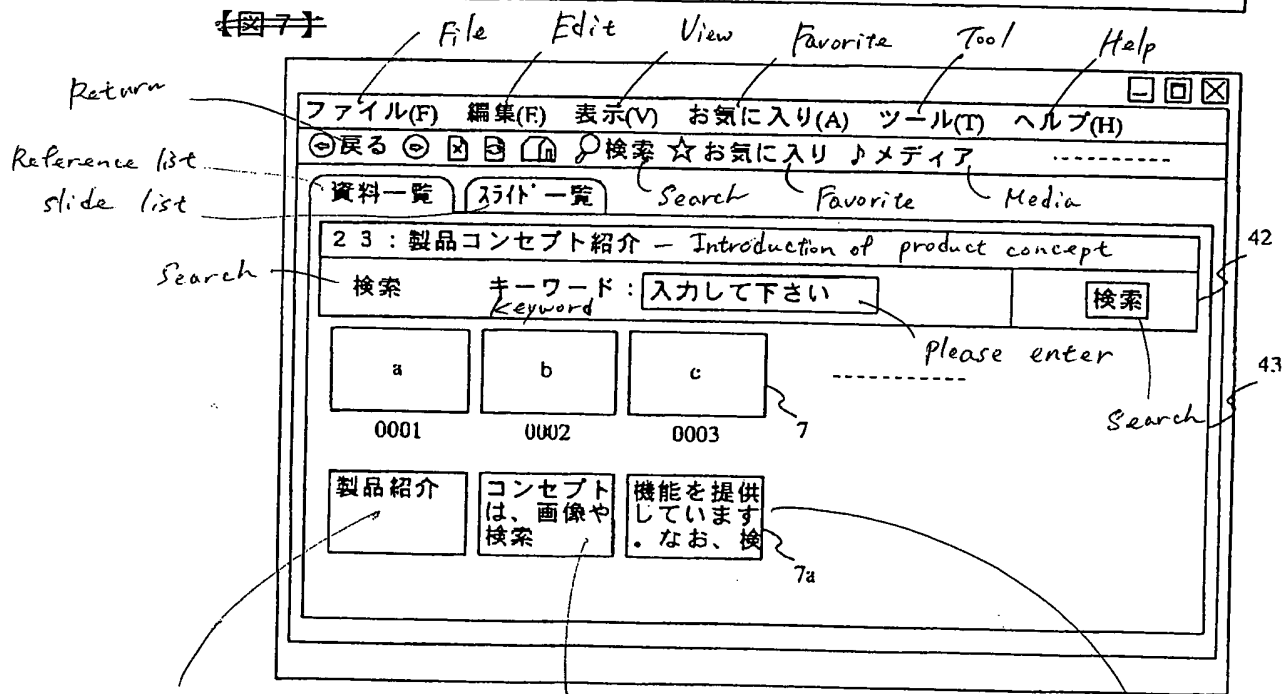 【図7】
File Edit View Favorite Tool Help
Return
ファイル(F) 編集(E) 表示(V) お気に入り(A) ツール(T) ヘルプ(H)
戻る 検索 ☆お気に入り ♪メディア
Reference list
slide list
資料一覧 スライド一覧 Search Favorite Media
23:製品コンセプト紹介 - Introduction of product concept
42
Search
検索 キーワード: 入力して下さい 検索
Keyword
Please enter
43
a b c
Search
0001 0002 0003 7
製品紹介 コンセプト 機能を提供
は、画像や しています
検索 。なお、検
7a